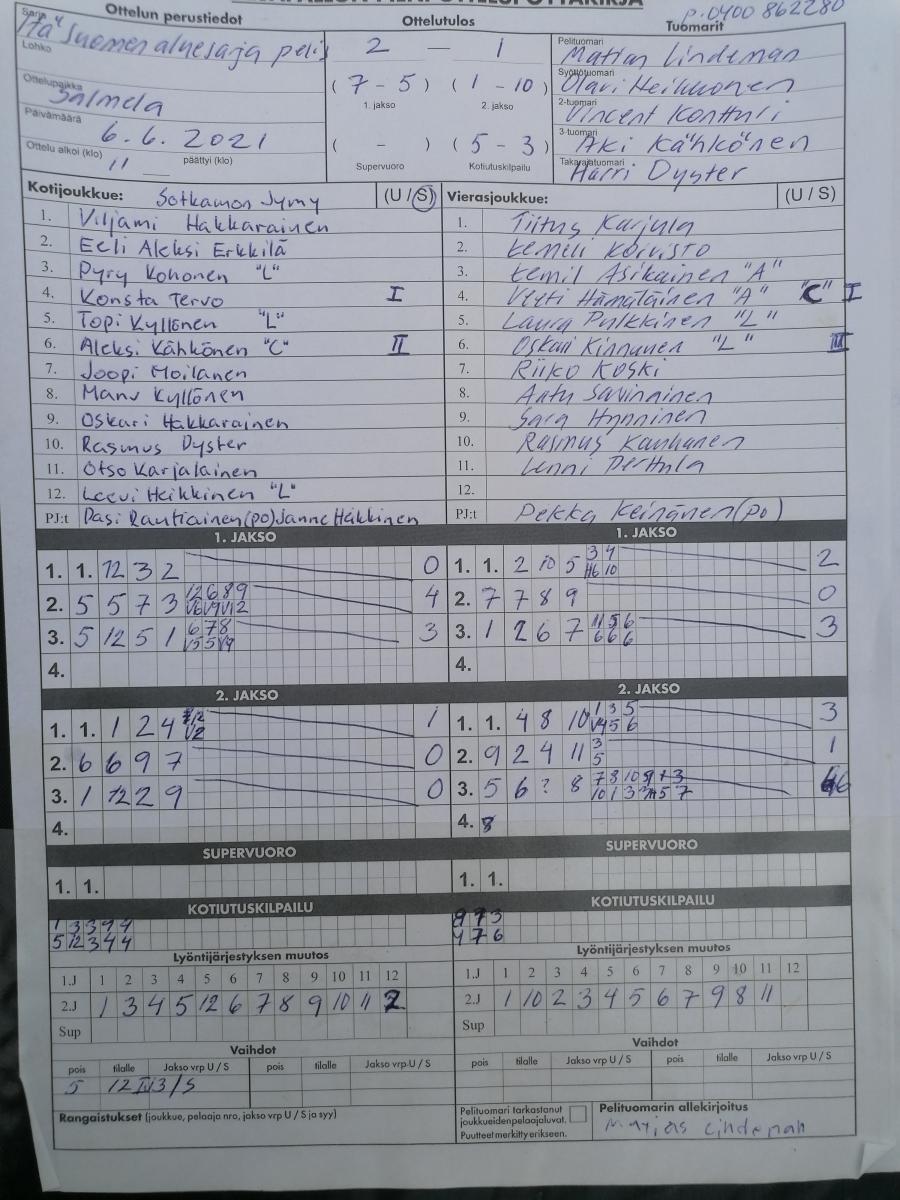 p.0400 862280
Sarja Ottelun perustiedot Ottelutulos Tuomarit
Itä Suomen aluesarja
Lohko
2 — 1
Pelituomari Lindeman
(7 - 5) (1 - 10)
1. jakso 2. jakso
Syöttötuomari Olavi Heikkonen
Ottelupaikka Salmela
2-tuomari Vincent Konttiri
Päivämäärä 6.6.2021
( - ) (5 - 3)
Supervuoro Kotiutuskilpailu
3-tuomari Aki Kähkönen
Ottelu alkoi (klo) 11 päättyi (klo)
Takarajatuomari Harri Dyster
Kotijoukkue: Sotkamon Jymy (U / S) Vierasjoukkue: (U / S)
1. Viljami Hakkarainen 1. Tiitus Karjula
2. Eeli Aleksi Erkkilä 2. Eemeli Koivisto
3. Pyry Kohonen "L" 3. Eemil Asikainen "A"
4. Konsta Tervo I 4. Hämäläinen "A" "C" I
5. Topi Kyllönen "L" 5. Laura Pulkkinen "L"
6. Aleksi Kähkönen "C" II 6. Oskari Kinnunen "L" III
7. Joopi Moilanen 7. Riiko Koski
8. Manu Kyllönen 8. Anttu Savinainen
9. Oskari Hakkarainen 9. Sara Hynninen
10. Rasmus Dyster 10. Rasmus Kauhanen
11. Otso Karjalainen 11. Lenni Perttula
12. Leevi Heikkinen "L" 12.
PJ:t Pasi Rautiainen (po) Janne Häkkinen PJ:t Pekka Keinänen (po)
1. JAKSO 1. JAKSO
1. 1. 12 3 2 0 1. 1. 2 10 5 3 4 2
H6 10
2. 5 5 7 3 12 6 8 9 4 2. 7 7 8 9 0
V6 V9 V12
3. 5 12 5 1 6 7 8 3 3. 1 2 6 7 11 5 6 3
V5 5 V9 6 6 6
4. 4.
2. JAKSO 2. JAKSO
1. 1. 1 2 4 1 1. 1. 4 8 10 1 3 5 3
V2 V4 5 6
2. 6 6 9 7 0 2. 9 2 4 11 3 1
5
3. 1 12 2 9 0 3. 5 6 ? 8 7 8 10 9 1 3 6
10 1 3 5 7
4. 4. 8
SUPERVUORO SUPERVUORO
1. 1. 1. 1.
KOTIUTUSKILPAILU KOTIUTUSKILPAILU
1 3 3 9 4 7 3
5 12 3 4 4 4 7 6
Lyöntijärjestyksen muutos Lyöntijärjestyksen muutos
1.J 1 2 3 4 5 6 7 8 9 10 11 12 1.J 1 2 3 4 5 6 7 8 9 10 11 12
2.J 1 3 4 5 12 6 7 8 9 10 11 2 2.J 1 10 2 3 4 5 6 7 9 8 11
Sup Sup
Vaihdot Vaihdot
pois tilalle Jakso vrp U / S pois tilalle Jakso vrp U / S pois tilalle Jakso vrp U / S pois tilalle Jakso vrp U / S
5 12 II/3/S
Rangaistukset (joukkue, pelaaja nro, jakso vrp U / S ja syy)
Pelituomari tarkastanut
joukkueiden pelaajaluvat.
Puutteet merkitty erikseen.
Pelituomarin allekirjoitus
Lindeman